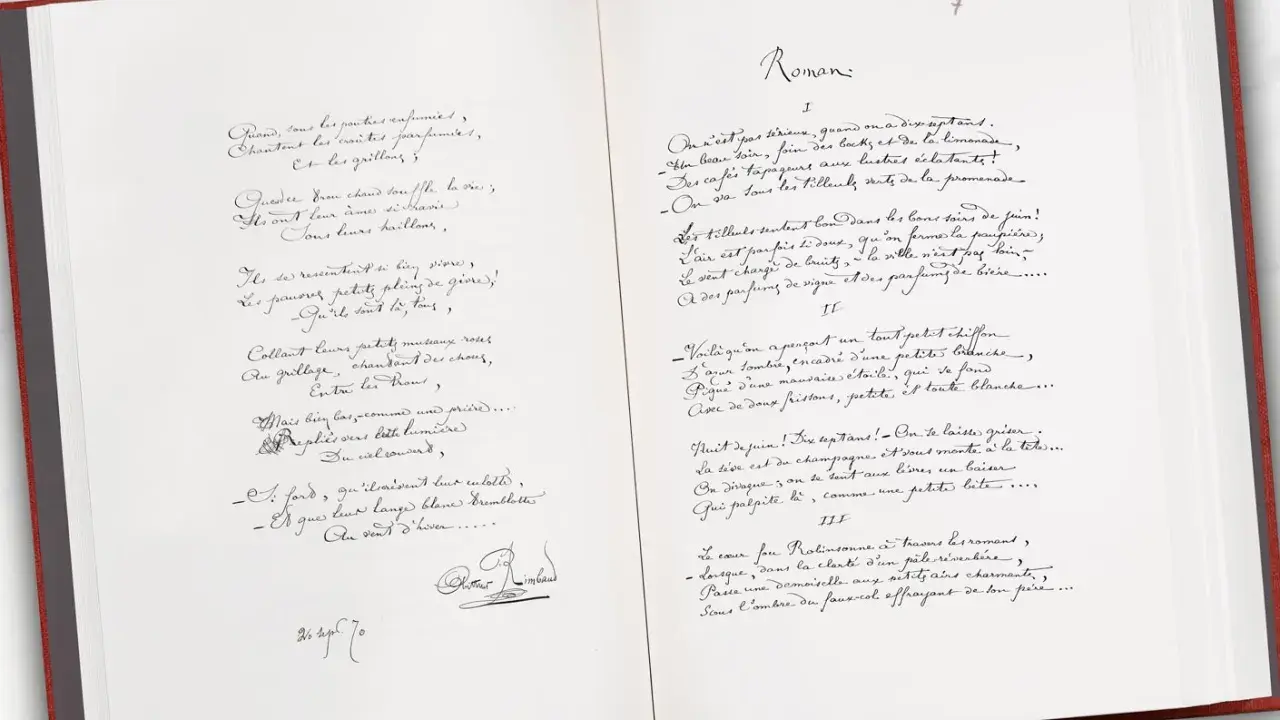 Quand, sous les poutres enfumées,
Chantent les croûtes parfumées,
Et les grillons ;
Que ce trou chaud souffle la vie ;
Ils ont leur âme si ravie
Sous leurs haillons,
Ils se ressentent si bien vivre,
Les pauvres petits pleins de givre !
— Qu'ils sont là, tous,
Collant leurs petits museaux roses
Au grillage, chantant des choses,
Entre les trous,
Mais bien bas, — comme une prière....
Repliés vers cette lumière
Du ciel rouvert,
— Si fort, qu'ils crèvent leur culotte,
— Et que leur lange blanc tremblotte
Au vent d'hiver.....
Arthur Rimbaud
20 sept. 70
7
Roman.
I
On n'est pas sérieux, quand on a dix sept ans.
— Un beau soir, foin des bocks et de la limonade,
Des cafés tapageurs aux lustres éclatants !
— On va sous les tilleuls verts de la promenade
Les tilleuls sentent bon dans les bons soirs de juin !
L'air est parfois si doux, qu'on ferme la paupière ;
Le vent chargé de bruits, — la ville n'est pas loin, —
A des parfums de vigne et des parfums de bière....
II
— Voilà qu'on aperçoit un tout petit chiffon
D'azur sombre, encadré d'une petite branche,
Piqué d'une mauvaise étoile, qui se fond
Avec de doux frissons, petite et toute blanche...
Nuit de juin ! Dix sept ans ! — On se laisse griser.
La sève est du champagne et vous monte à la tête...
On divague ; on se sent aux lèvres un baiser
Qui palpite là, comme une petite bête....
III
Le cœur fou Robinsonne à travers les romans,
— Lorsque, dans la clarté d'un pâle réverbère,
Passe une demoiselle aux petits airs charmants,
Sous l'ombre du faux-col effrayant de son père...